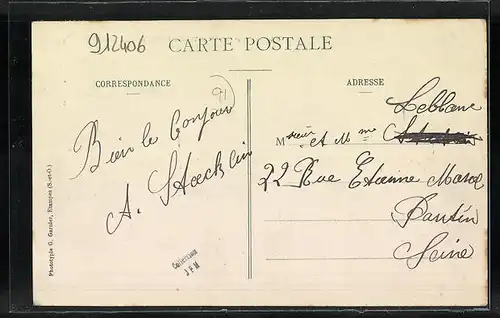 912406
CARTE POSTALE
CORRESPONDANCE
91
Bien le bonjour
A. Stæcklin
Phototypie G. Garnier, Etampes (S.-et-O.)
Collection
J F M
ADRESSE
Leblanc
Monsieur et Mme
22 Rue Etienne Marcel
Pantin
Seine